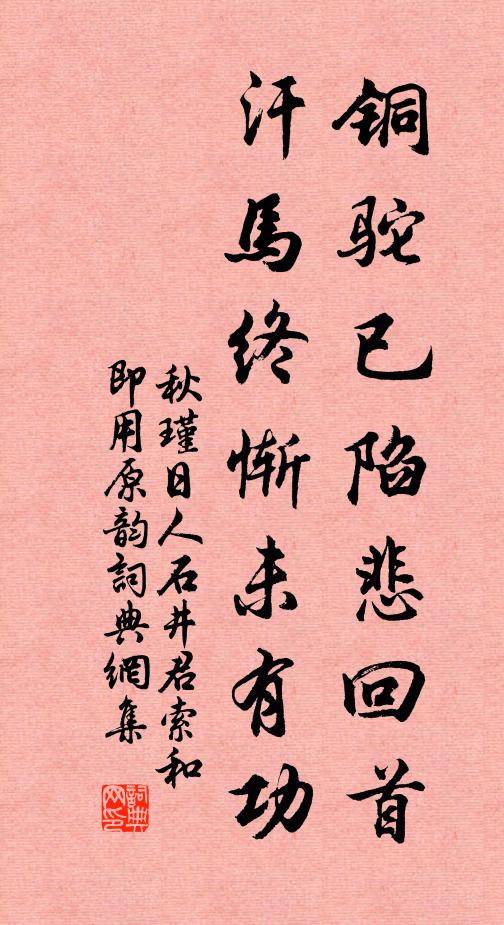 铜驼已陷悲回首
汗馬终惭未有功
秋瑾日人石井君索和
即用原韵詞典網集
詞典网印